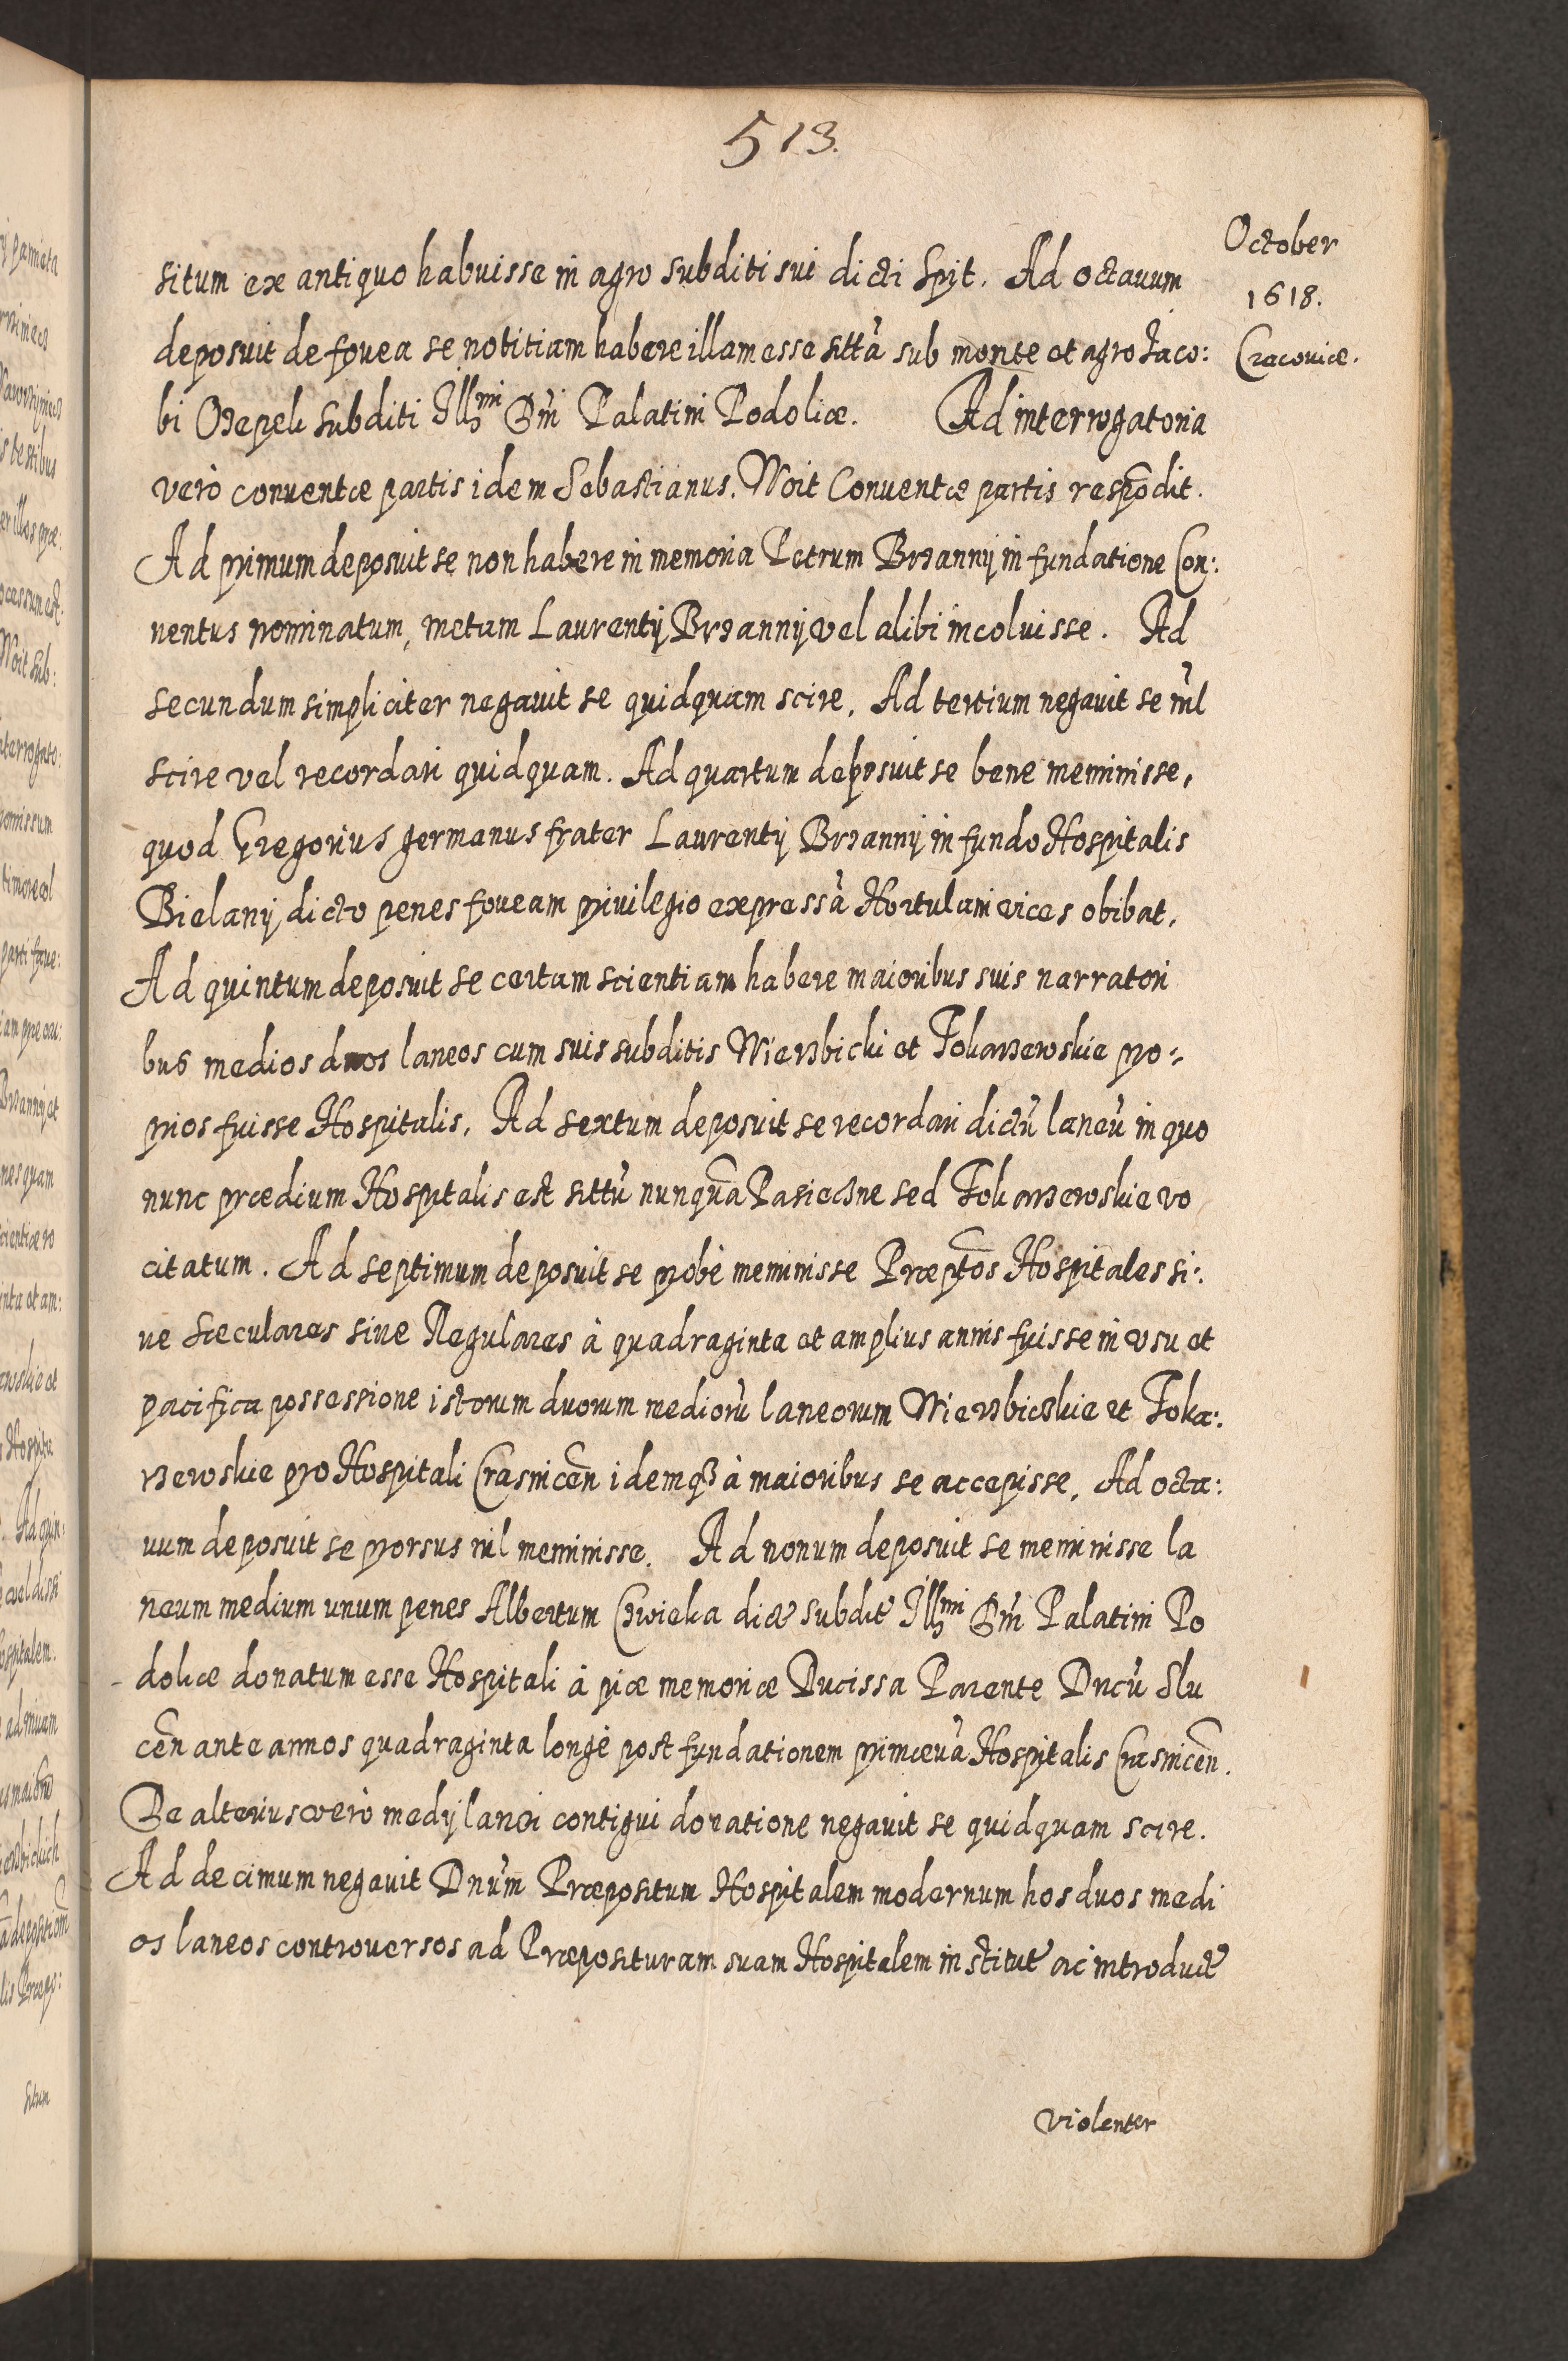 513.
October
1618.
Cracoviæ.
situm ex antiquo habuisse in agro subditi sui dicti Spyt. Ad octauum
deposuit de fovea se notitiam habere illam esse sittã sub monte et agro Jaco:
bi Ozepeli subditi Illmi Dni Palatini Podoliæ. Ad interrogatoria
verò conuentæ partis idem Sebastianus Woit Conuentæ partis respõdit.
Ad primum deposuit se non habere in memoria Petrum Brzanny in fundatione Con:
nentus nominatum, metam Laurentij Brzanny vel alibi incoluisse. Ad
secundum simpliciter negauit se quidquam scire. Ad tertium negauit se nil
scire vel recordari quidquam. Ad quartum deposuit se bene meminisse,
quod Gregorius germanus frater Laurentij Brzanny in fundo Hospitalis
Bielany dicto penes foueam priuilegio expressã Hortulani vices obibat.
Ad quintum deposuit se certam scientiam habere maioribus suis narratori
bus medios duos laneos cum suis subditis Wierzbicki et Tokarzewskie pro:
prios fuisse Hospitalis. Ad sextum deposuit se recordari dictũ laneũ in quo
nunc prædium Hospitalis est sittũ nunquã Pasieczne sed Tokarzewskie vo
citatum. Ad septimum deposuit se probè meminisse Præptõs Hospitales si:
ue sæculares siue Regulares à quadraginta et amplius annis fuisse in vsu et
pacifica possessione istorum duorum mediorũ laneorum Wierzbiczkie et Toka:
rzewskie pro Hospitali Crasnicen̄ idemqꝫ à maioribus se accepisse. Ad octa:
uum deposuit se prorsus nil meminisse. Ad nonum deposuit se meminisse la
neum medium unum penes Albertum Cwieka dict subdit Illmi Dni Palatini Po
doliæ donatum esse Hospitali à piæ memoriæ Ducissa Parente Ducũ Slu
cen̄ ante annos quadraginta longè post fundationem primæuã Hospitalis Crasnicen̄.
De alterius verò medij lanei contigui donatione negauit se quidquam scire.
Ad decimum negauit Dnũm Præpositum Hospitalem modernum hos duos medi
os laneos controuersos ad Præposituram suam Hospitalem institut ac introduct
violenter